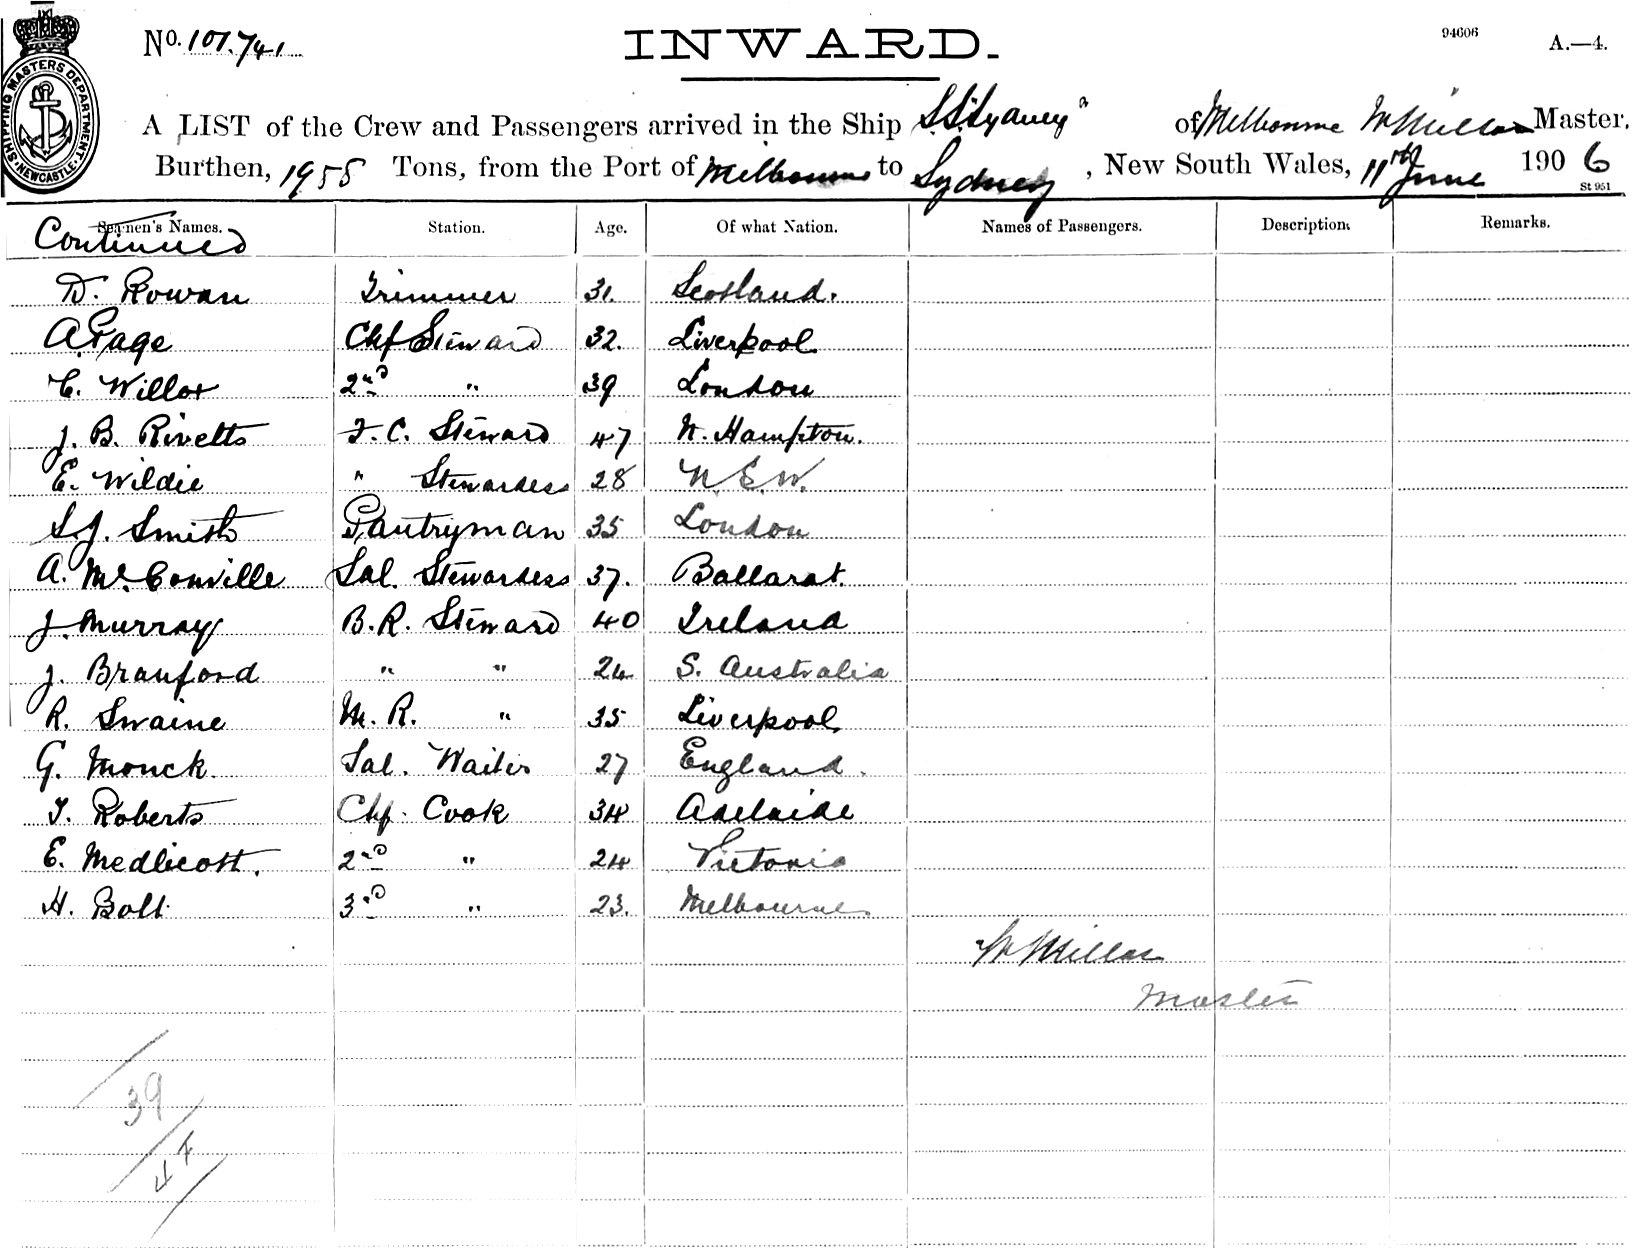 No. 101.741 INWARD. 94606 A.—4.
SHIPPING MASTERS DEPARTMENT NEWCASTLE
A LIST of the Crew and Passengers arrived in the Ship S.S. "Sydney" of Melbourne W Millar Master,
Burthen, 1958 Tons, from the Port of Melbourne to Sydney, New South Wales, 11th June 1906
St 951
Seamen's Names. Station. Age. Of what Nation. Names of Passengers. Description. Remarks.
Continued
D. Rowan Trimmer 31. Scotland.
A. Page Chf Steward 32. Liverpool
C. Willox 2nd " 39 London
J. B. Rivetts F. C. Steward 47 N. Hampton.
E. Wildie " Stewardess 28 N.S.W.
S. J. Smith Pantryman 35 London
A. McConville Sal. Stewardess 37. Ballarat.
J. Murray B. R. Steward 40 Ireland
J. Branford " " 24 S. Australia
R. Swaine M. R. " 35 Liverpool
G. Monck. Sal. Waiter 27 England.
T. Roberts Chf. Cook 34 Adelaide
E. Medlicott. 2nd " 24 Victoria
H. Bolt. 3rd " 23. Melbourne
W Millar
Master
39